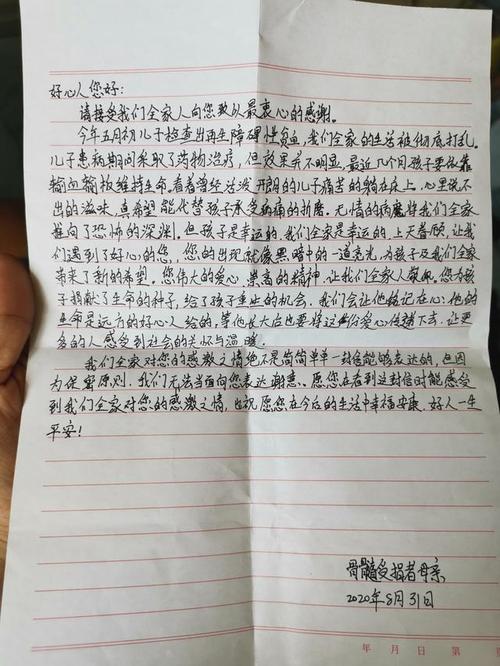 好心人您好:
请接受我们全家人向您致以最衷心的感谢。
今年五月初儿子检查出再生障碍性贫血,我们全家的生活被彻底打乱。
儿子患病期间采取了药物治疗,但效果并不明显,最近几个月孩子要依靠
输血输板维持生命,看着曾经活泼开朗的儿子痛苦的躺在床上,心里说不
出的滋味,真希望能代替孩子承受病痛的折磨。无情的病魔将我们全家
推向了恐怖的深渊。但孩子是幸运的,我们全家是幸运的,上天眷顾,让我
们遇到了好心的您,您的出现就像黑暗中的一道亮光,为孩子及我们全家
带来了新的希望。您伟大的爱心,崇高的精神,让我们全家人敬佩,您为孩
子捐献了生命的种子,给了孩子重生的机会,我们会让他铭记在心,他的
生命是远方的好心人给的,等他长大后也要将这份爱心传递下去,让更
多的人感受到社会的关怀与温暖。
我们全家对您的感激之情绝不是简简单单一封信能够表达的,但因
为保密原则,我们无法当面向您表达谢意,愿您在看到这封信时能感受
到我们全家对您的感激之情,也祝愿您在今后的生活中幸福安康,好人一生
平安!
骨髓受捐者母亲
2020年8月31日
年 月 日 第